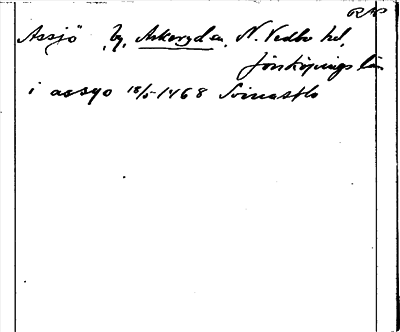 RAP
Assjö by, Askeryd sn, N. Vedbo hd,
Jönköpings län
i assyo 18/5-1468